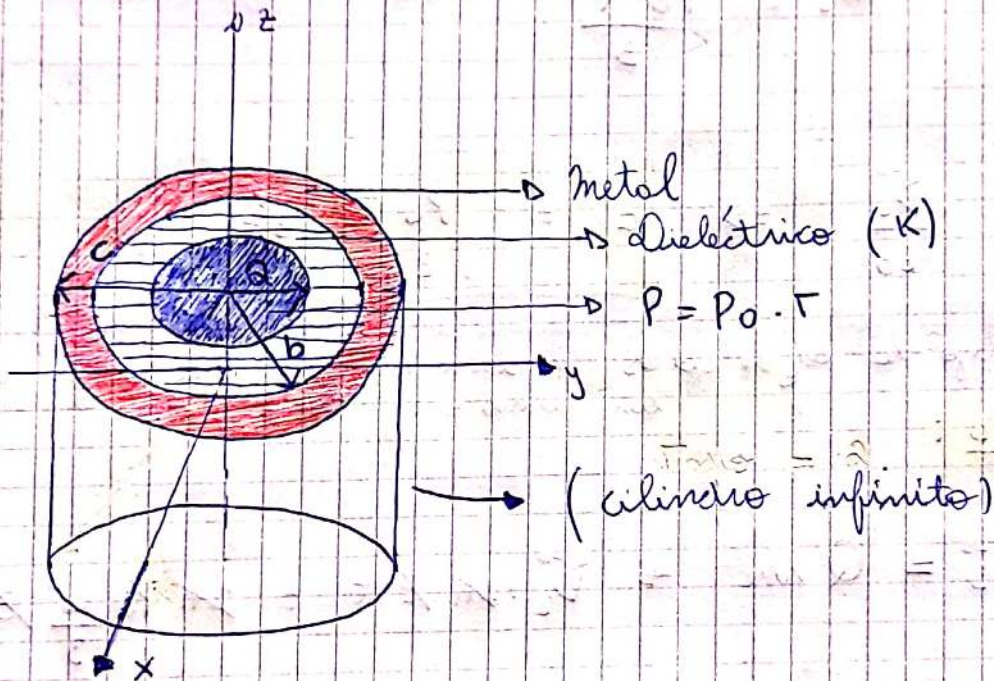 z
metal
Dieléctrico (K)
P = P0 . r
c
a
b
y
(cilindro infinito)
x